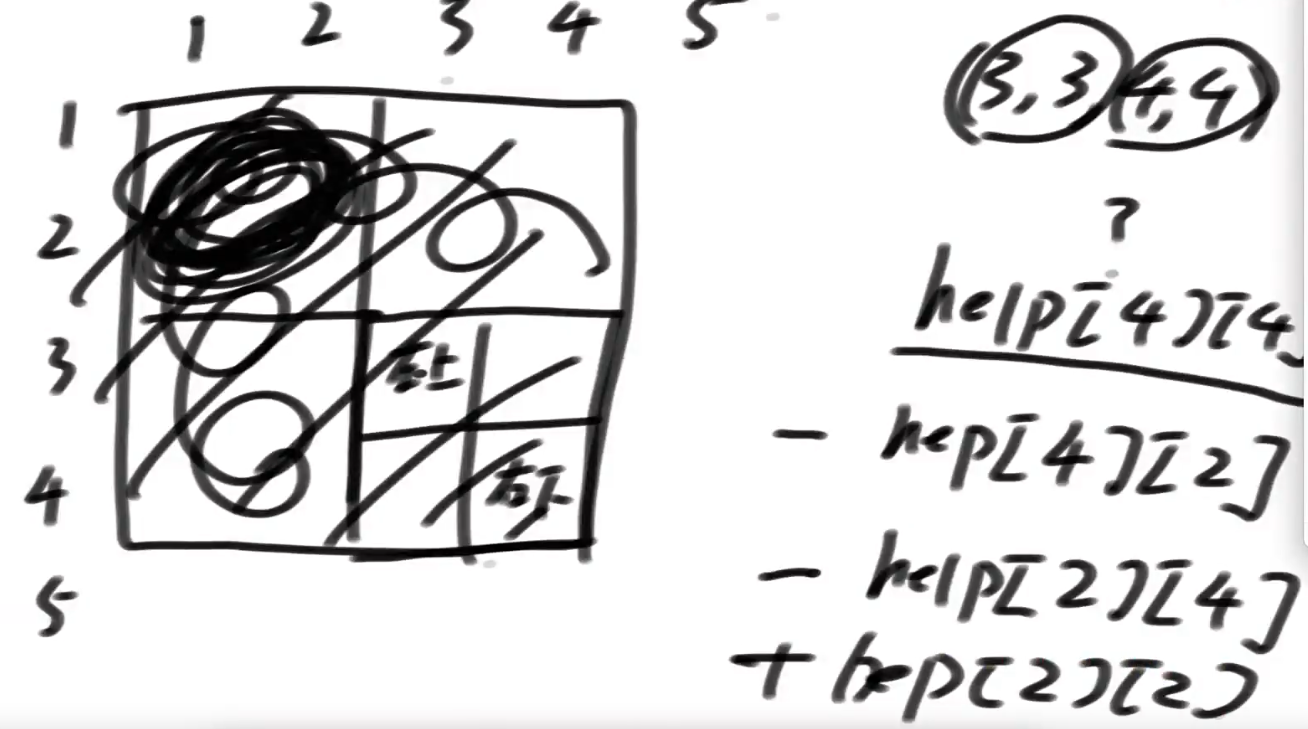 1 2 3 4 5
1
2
3
4
5
左上
右下
(3,3)(4,4)
?
help[4][4]
- hep[4][2]
- help[2][4]
+ hep[2][2]